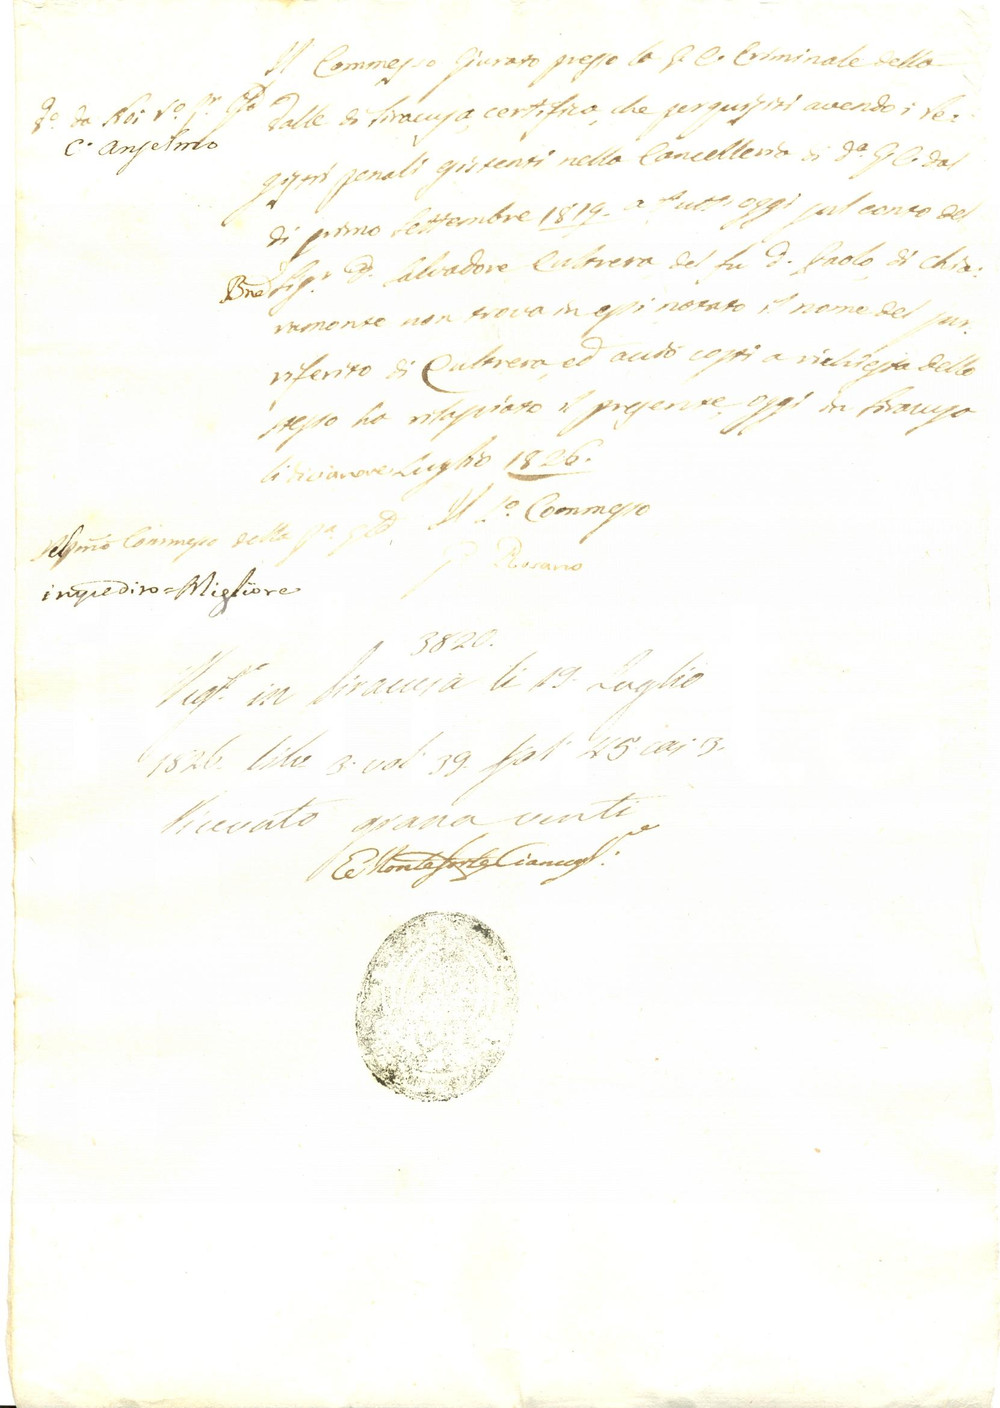 Il Commesso Giurato presso la G. C. Criminale della
Valle di Siracusa, certifica, che perquisiti avendo i Re-
gistri penali esistenti nella Cancelleria di da. G. C. dal
di primo Settembre 1819. a tutto oggi sul conto del
Sigr. D. Salvadore Cultrera del fu D. Paolo, di Chia-
ramonte non trova in essi notato il nome del sur-
riferito di Cultrera, ed avutó a richiesta dello
stesso ha rilasciato il presente, oggi in Siracusa
li diecinove Luglio 1826.
Vo. da Noi
C. Anselmo
Bne
Il Commesso
Rosano
Commesso della
impedito = Migliore
3820.
Regta. in Siracusa li 19. Luglio
1826. lib. 3. vol. 39. fol. 45 cas. 3.
Ricevuto grana venti
Monteforte